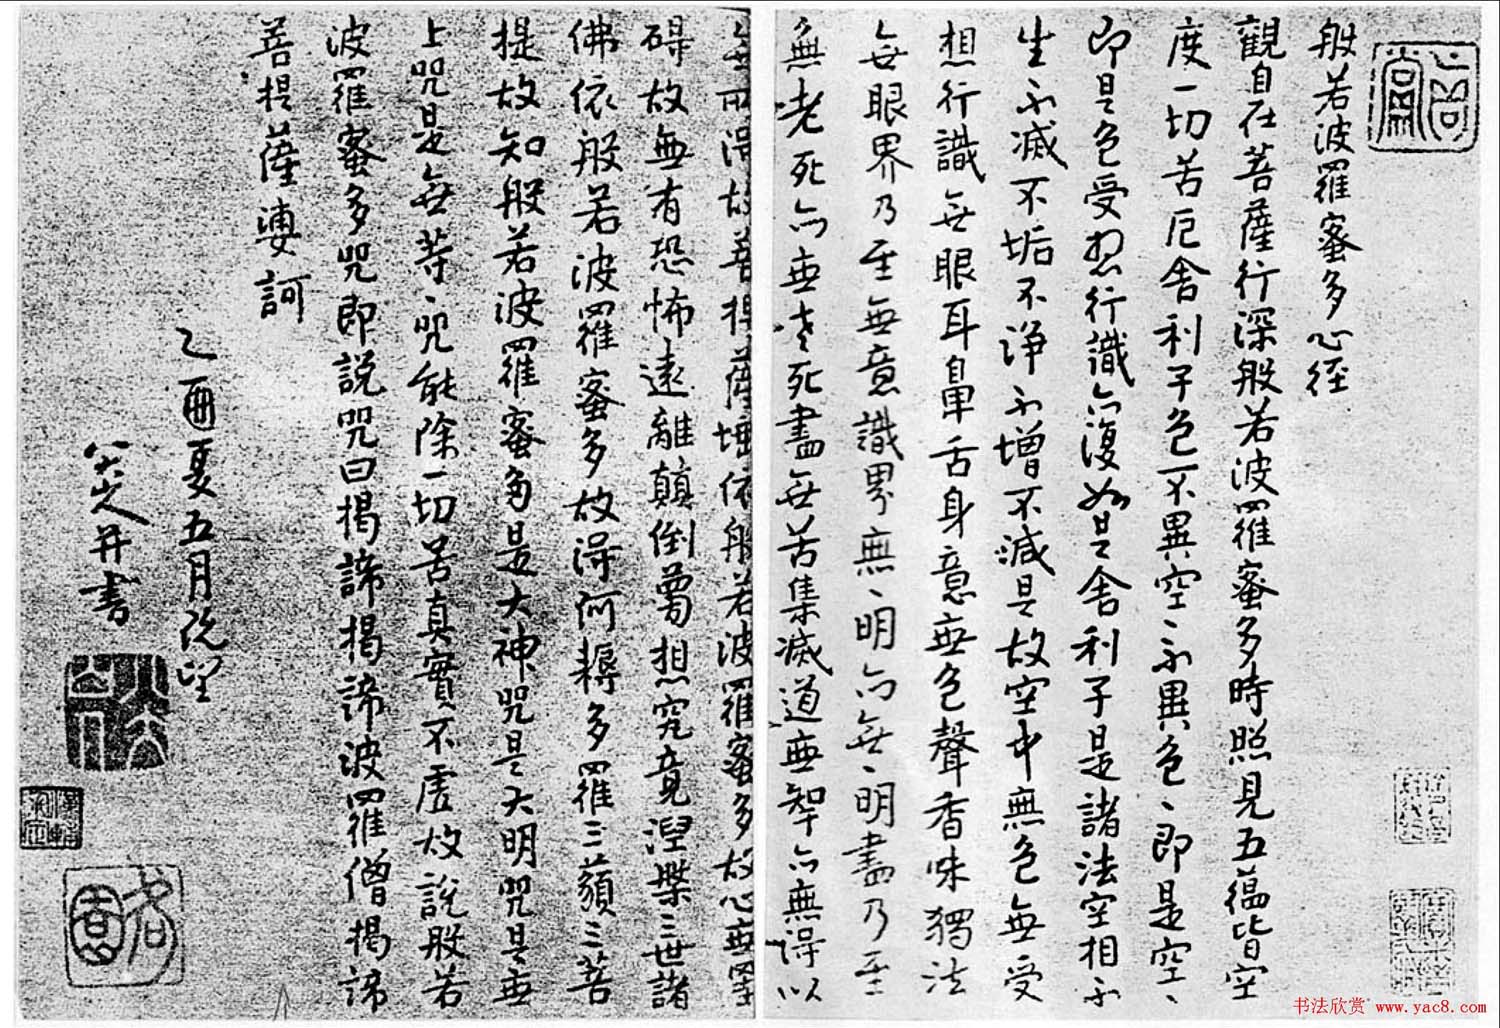 般若波羅蜜多心經
觀自在菩薩行深般若波羅蜜多時照見五蘊皆空
度一切苦厄舍利子色不異空〻不異色〻即是空〻
即是色受想行識亦復如是舍利子是諸法空相不
生不滅不垢不淨不增不減是故空中無色無受
想行識無眼耳鼻舌身意無色聲香味獨法
無眼界乃至無意識界無〻明亦無〻明盡乃至
無老死亦無老死盡無苦集滅道無智亦無得以
無所得故菩提薩埵依般若波羅蜜多故心無罣
礙故無有恐怖遠離顛倒夢想究竟涅槃三世諸
佛依般若波羅蜜多故得阿耨多羅三藐三菩
提故知般若波羅蜜多是大神咒是大明咒是無
上咒是無等〻咒能除一切苦真實不虛故說般若
波羅蜜多咒即說咒曰揭諦揭諦波羅僧揭諦
菩提薩婆訶
乙酉夏五月既望
八大山人并書
书法欣赏 www.yac8.com